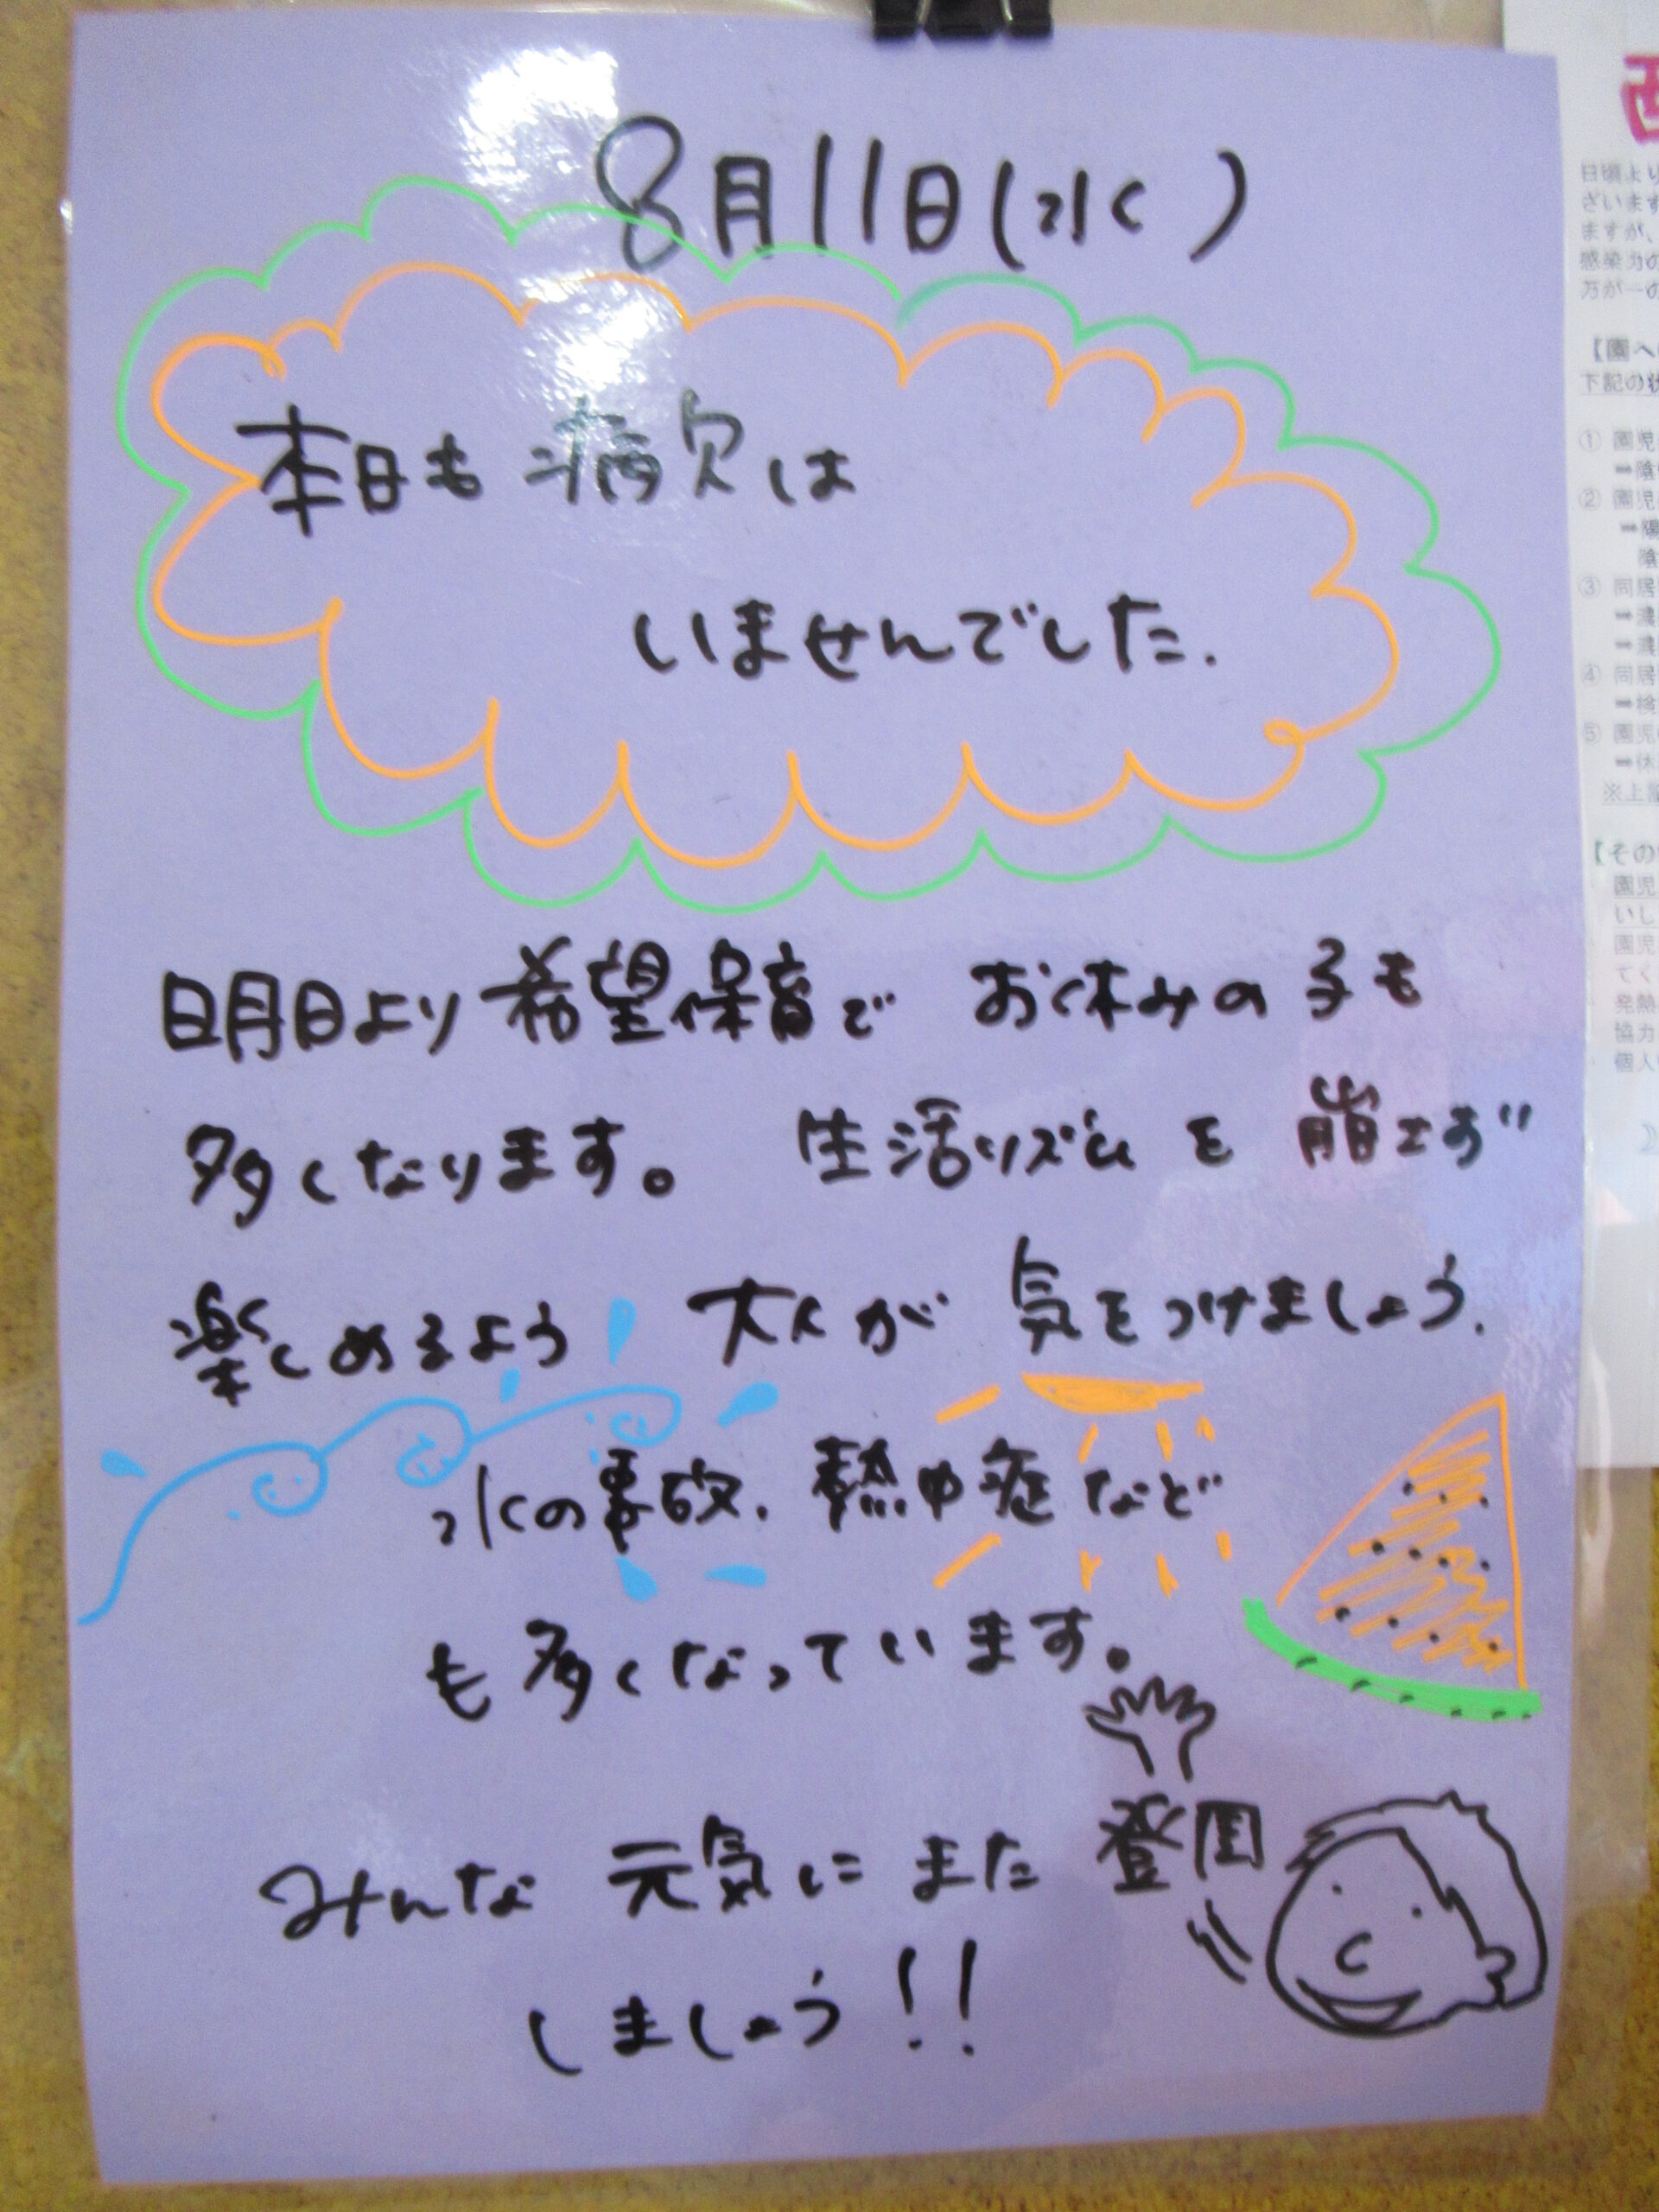 8月11日(水)
本日も 病欠は
いませんでした.
明日より 希望保育で お休みの 子も
多くなります。 生活リズムを 崩さず
楽しめるよう 大人が 気をつけましょう.
水の事故. 熱中症 など
も 多くなっています。
みんな 元気に また 登園
しましょう!!
西
日頃より
ざいます
ますが、
感染力の
万が一の
【園へ
下記の状
① 園児
② 園児
陰
③ 同居
➡濃
➡濃
④ 同居
➡検
⑤ 園児
➡休
※上記
【その
園児
いし
園児
てく
発熱
協力
個人